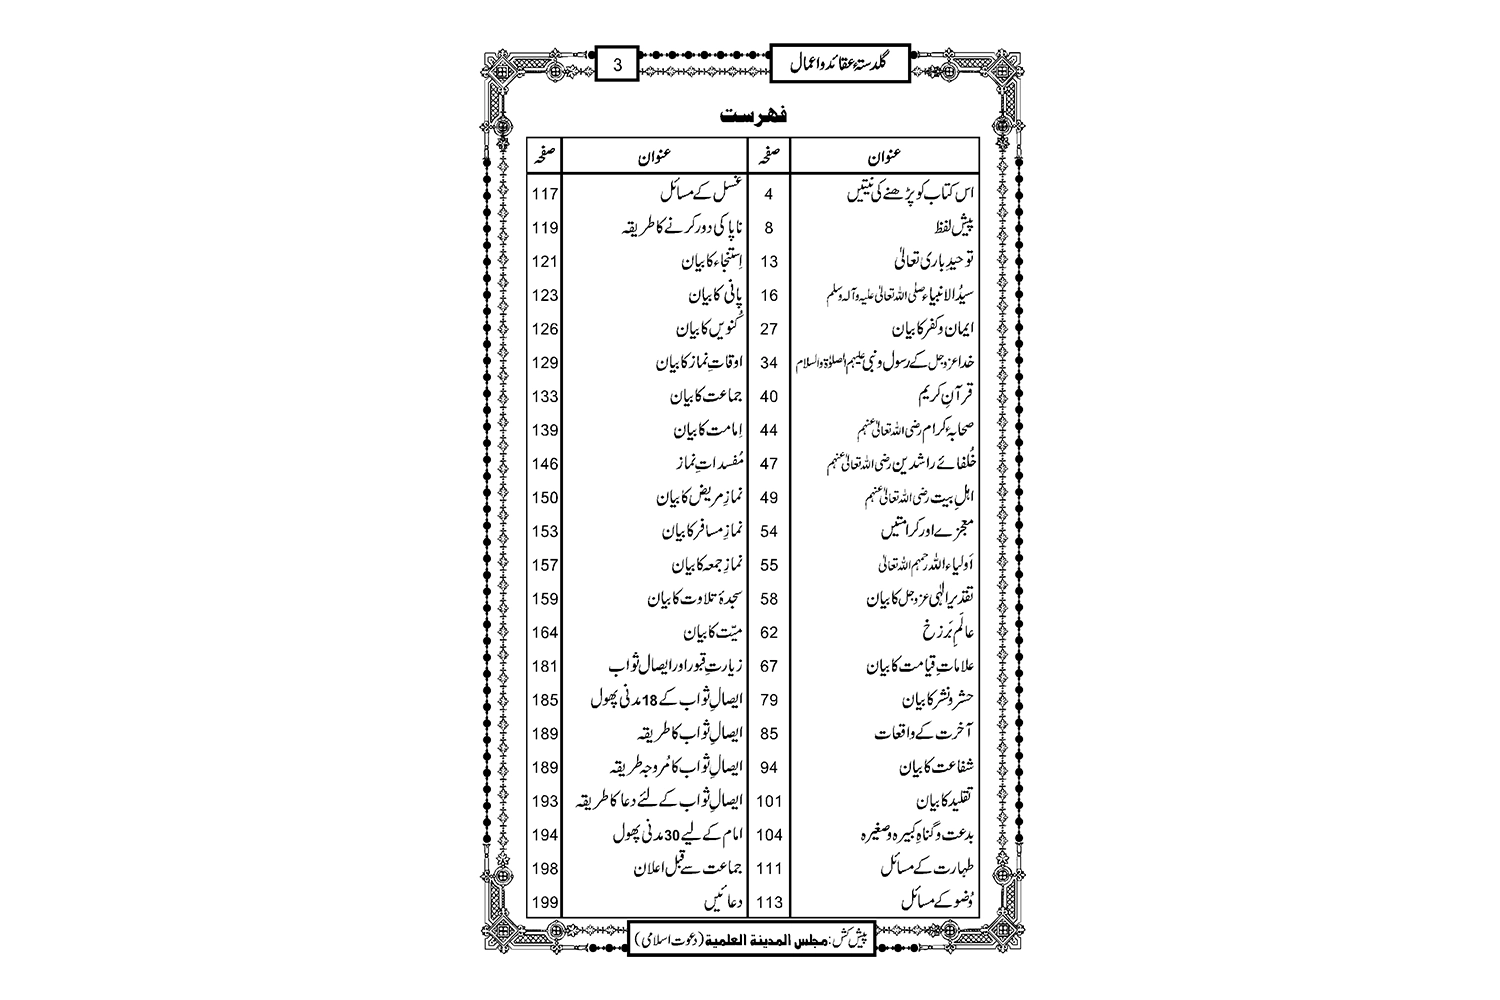 گلدستۂ عقائد و اعمال 3
فہرست
عنوان صفحہ عنوان صفحہ
اس کتاب کو پڑھنے کی نیتیں 4 غسل کے مسائل 117
پیش لفظ 8 ناپاکی دور کرنے کا طریقہ 119
توحیدِ باری تعالیٰ 13 اِستنجاء کا بیان 121
سیدُ الانبیاء صلی اللہ تعالیٰ علیہ وآلہ وسلم 16 پانی کا بیان 123
ایمان و کفر کا بیان 27 کُنویں کا بیان 126
خدا عزوجل کے رسول و نبی علیہم الصلوٰۃ والسلام 34 اوقاتِ نماز کا بیان 129
قرآنِ کریم 40 جماعت کا بیان 133
صحابۂ کرام رضی اللہ تعالیٰ عنہم 44 اِمامت کا بیان 139
خُلفائے راشدین رضی اللہ تعالیٰ عنہم 47 مُفسداتِ نماز 146
اہلِ بیت رضی اللہ تعالیٰ عنہم 49 نمازِ مریض کا بیان 150
معجزے اور کرامتیں 54 نمازِ مسافر کا بیان 153
اَولیاء اللہ رحمہم اللہ تعالیٰ 55 نمازِ جمعہ کا بیان 157
تقدیرِ الٰہی عزوجل کا بیان 58 سجدۂ تلاوت کا بیان 159
عالَمِ بَرزخ 62 میّت کا بیان 164
علاماتِ قیامت کا بیان 67 زیارتِ قبور اور ایصال ثواب 181
حشر و نشر کا بیان 79 ایصالِ ثواب کے 18 مدنی پھول 185
آخرت کے واقعات 85 ایصالِ ثواب کا طریقہ 189
شفاعت کا بیان 94 ایصالِ ثواب کا مُروجہ طریقہ 189
تقلید کا بیان 101 ایصالِ ثواب کے لئے دعا کا طریقہ 193
بدعت و گناہِ کبیرہ و صغیرہ 104 امام کے لیے 30 مدنی پھول 194
طہارت کے مسائل 111 جماعت سے قبل اعلان 198
وُضو کے مسائل 113 دعائیں 199
پیش کش: مجلس المدینۃ العلمیۃ (دعوت اسلامی)